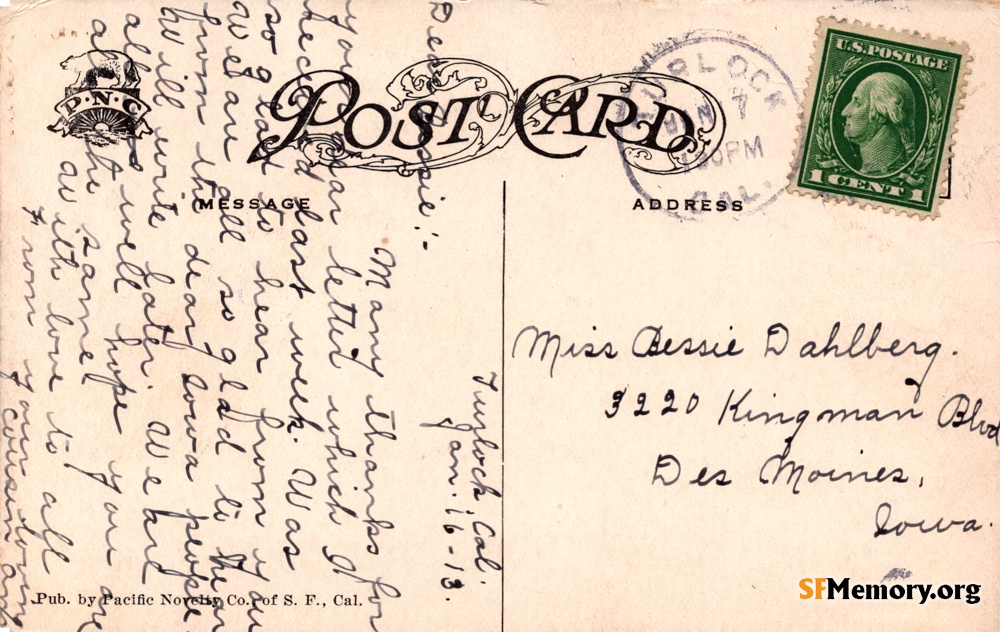 P.N.C.
POST CARD
MESSAGE
ADDRESS
TURLOCK
JAN 17
CAL.
U.S. POSTAGE
1 CENT 1
Turlock, Cal.
Jan. 16-13.
Dear Bessie:-
Many thanks for
your dear letter which I
received last week. Was
so glad to hear from you
We are all so glad to hear
from the dear Iowa people.
Will write later. We are
all well hope you are
all the same
with love to all
From your loving
cousin and
Miss Bessie Dahlberg.
3220 Kingman Blvd
Des Moines,
Iowa.
Pub. by Pacific Novelty Co., of S. F., Cal.
SFMemory.org